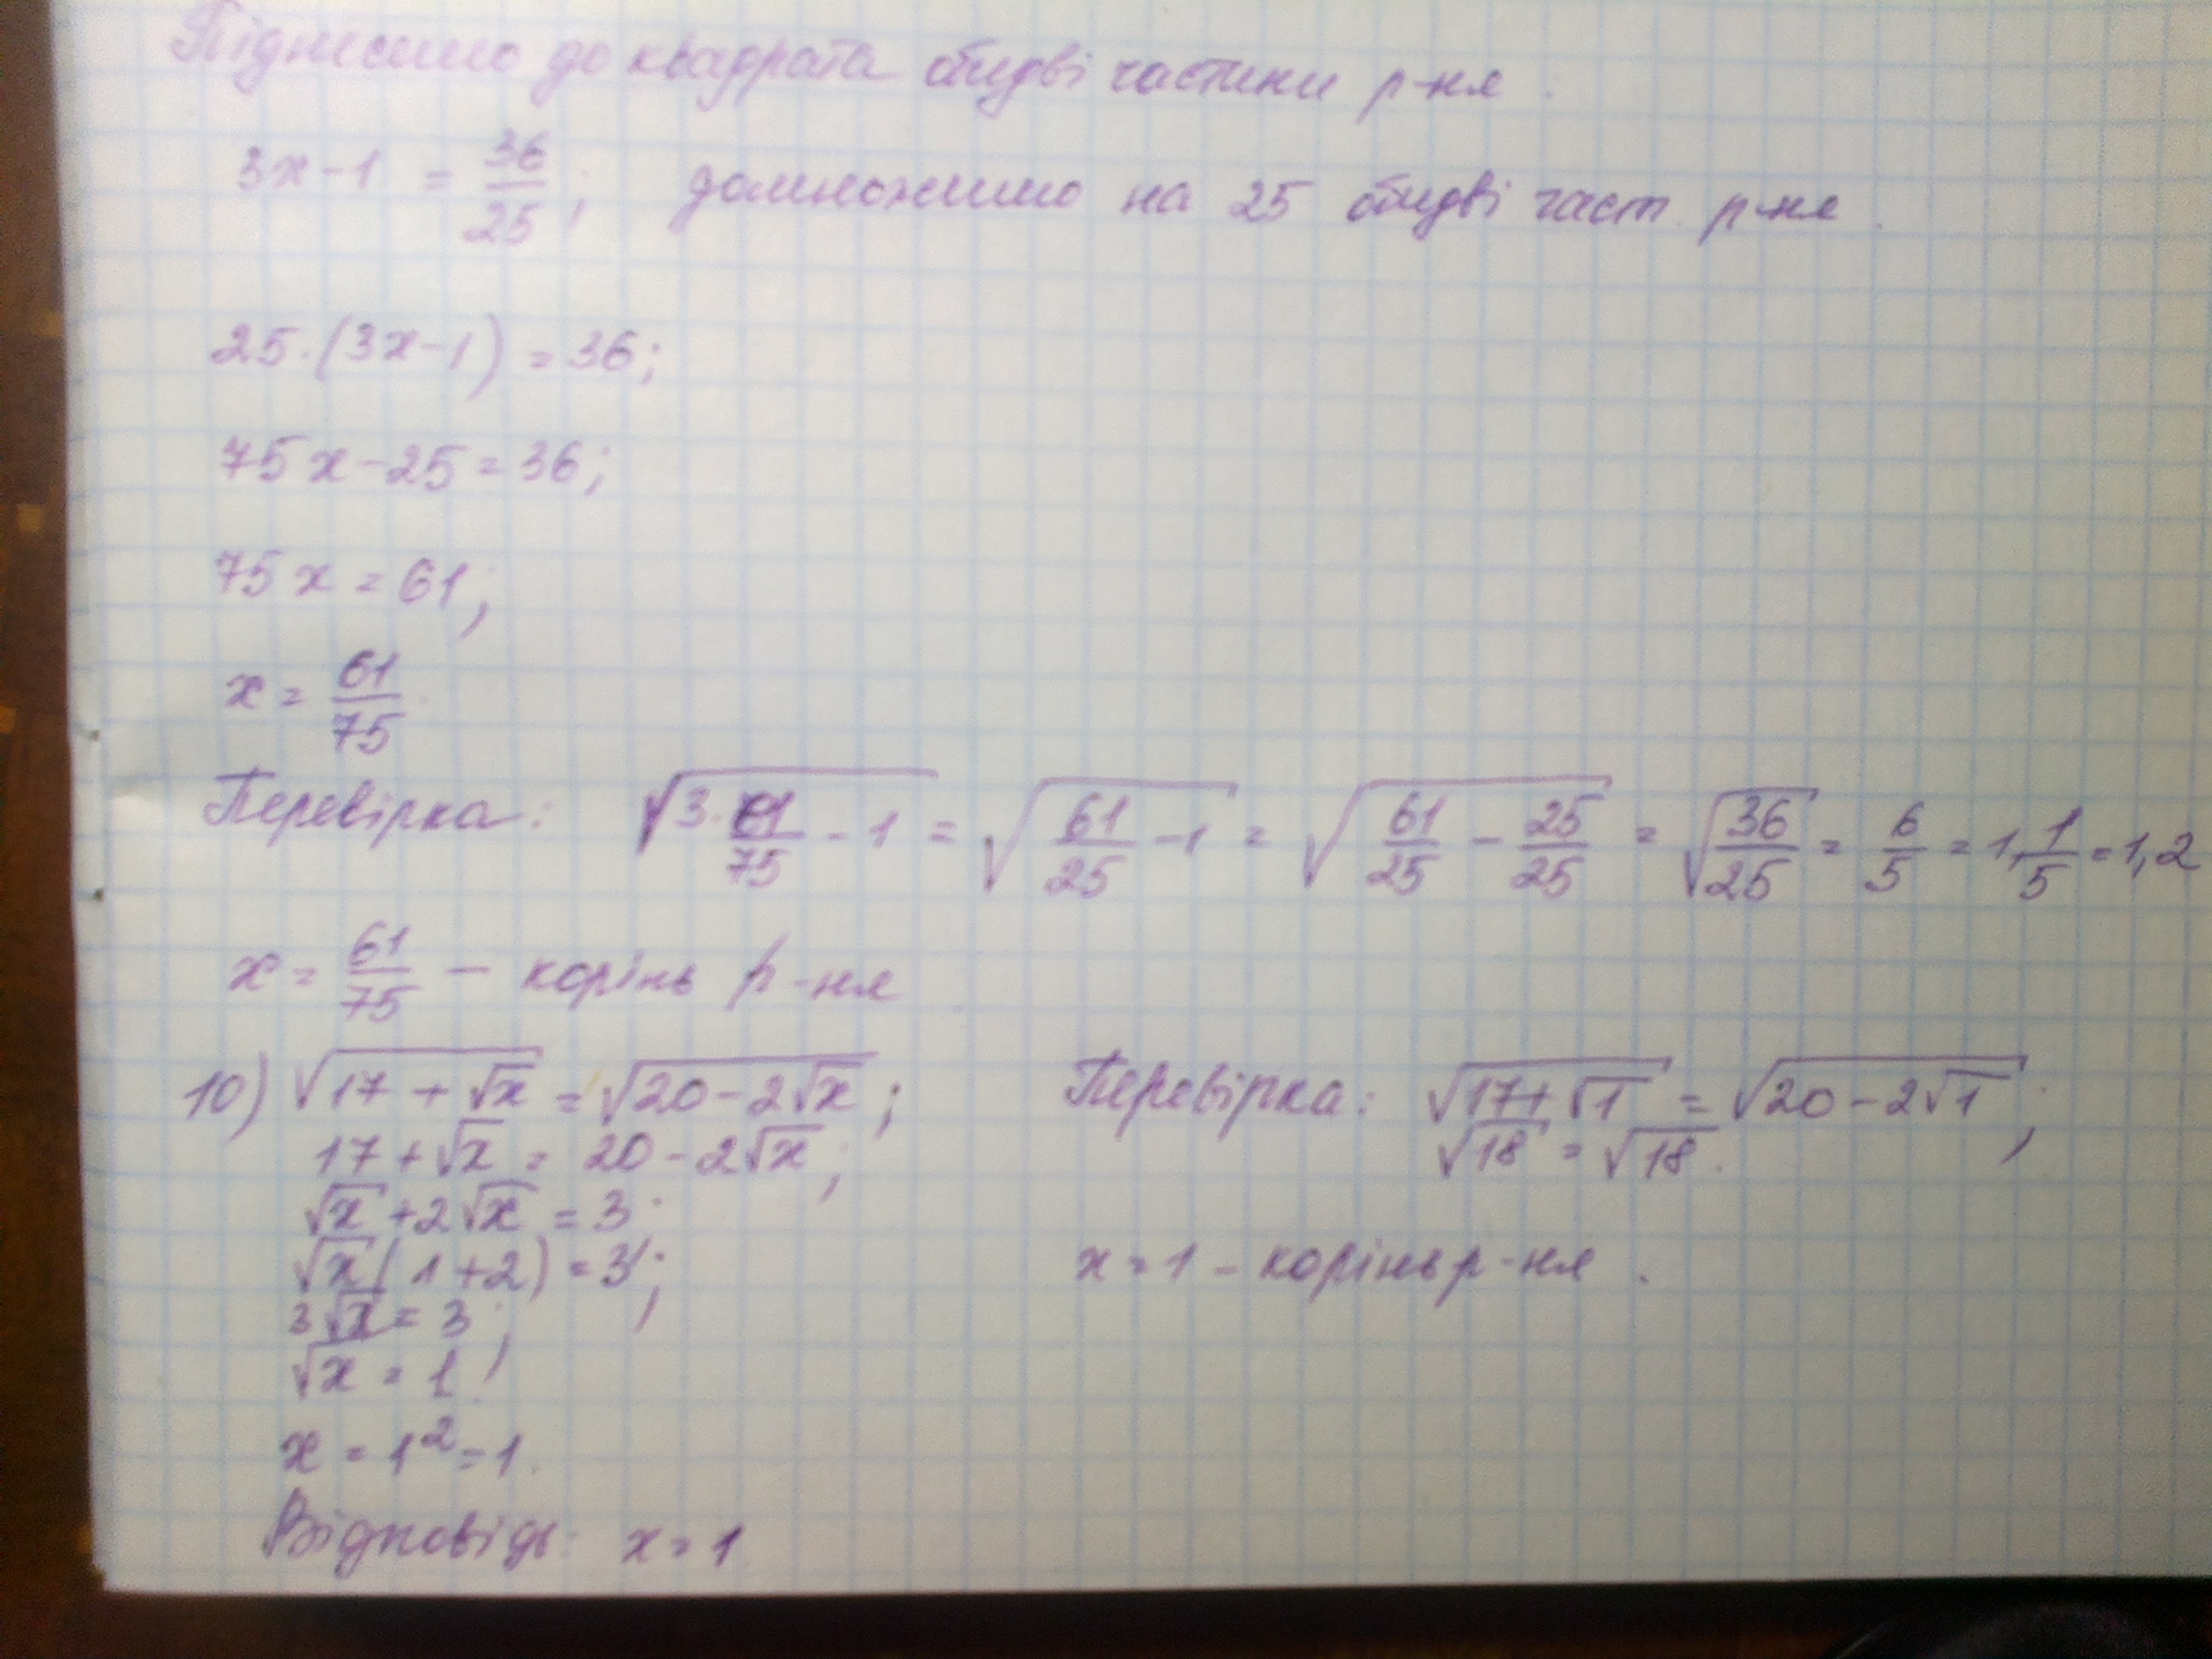 Піднесемо до квадрата обидві частини р-ня.
3x-1 = 36/25; домножимо на 25 обидві част. р-ня.
25·(3x-1) = 36;
75x-25=36;
75x=61;
x = 61/75
Перевірка: √(3·61/75 - 1) = √(61/25 - 1) = √(61/25 - 25/25) = √(36/25) = 6/5 = 1 1/5 = 1,2
x = 61/75 – корінь р-ня
10) √(17+√x) = √(20-2√x);
17+√x = 20-2√x;
√x+2√x = 3;
√x(1+2) = 3;
3√x = 3;
√x = 1;
x = 1² = 1.
Відповідь: x = 1
Перевірка: √(17+√1) = √(20-2√1);
√18 = √18.
x = 1 – корінь р-ня.